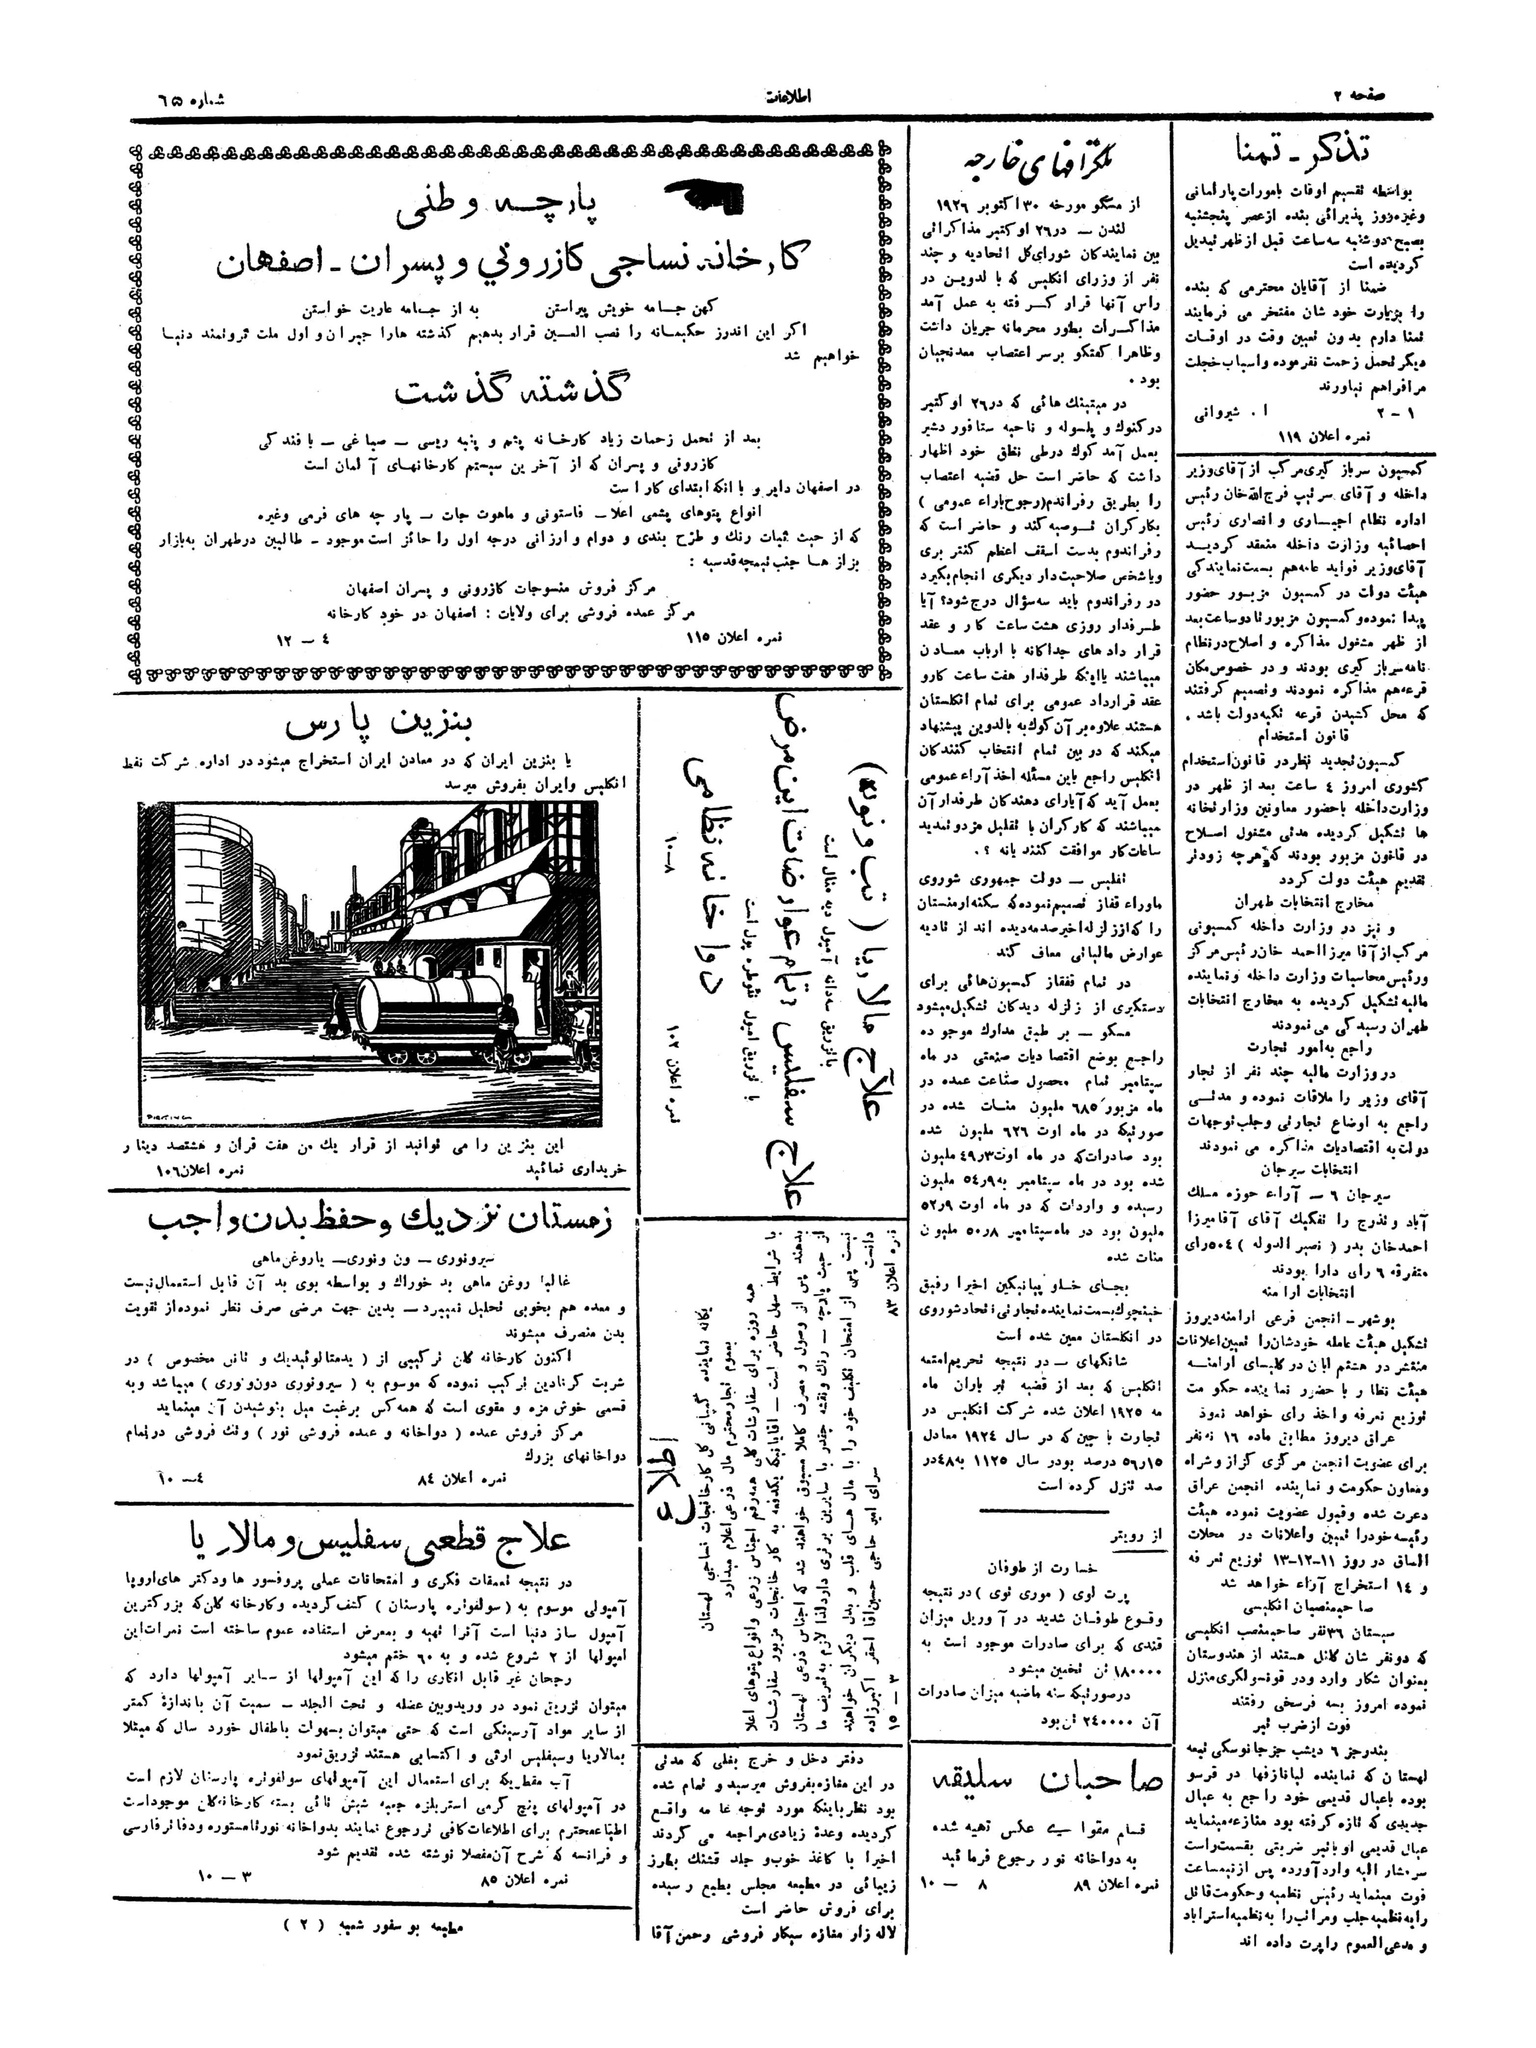 صفحه ۲
اطلاعات
شماره ۶۵
تذکر ـ تمنا
بواسطه تقسیم اوقات بامورات پارلمانی
وغیره روز پذیرائی بنده ازعصر پنجشنبه
بصبح دوشنبه سه ساعت قبل از ظهر تبدیل
گردیده است
ضمنا از آقایان محترمی که بنده
را بزیارت خود شان مفتخر می فرمایند
تمنا دارم بدون تعیین وقت در اوقات
دیگر تحمل زحمت نفرموده واسباب خجلت
مرا فراهم نیاورند
۱ ـ ۲ ا . شیروانی
نمره اعلان ۱۱۹
کمیسیون سرباز گیری مرکب از آقای وزیر
داخله و آقای سرتیپ فرج الله خان رئیس
اداره نظام اجباری و انصاری رئیس
احصائیه وزارت داخله منعقد گردید
آقای وزیر فواید عامه هم بسمت نمایندگی
هیئت دولت در کمیسیون مزبور حضور
پیدا نموده و کمیسیون مزبور تا دو ساعت بعد
از ظهر مشغول مذاکره و اصلاح در نظام
نامه سرباز گیری بودند و در خصوص مکان
قرعه هم مذاکره نمودند و تصمیم گرفتند
که محل کشیدن قرعه تکیه دولت باشد .
قانون استخدام
کمیسیون تجدید نظر در قانون استخدام
کشوری امروز ٤ ساعت بعد از ظهر در
وزارت داخله باحضور معاونین وزارتخانه
ها تشکیل گردیده مدتی مشغول اصلاح
در قانون مزبور بودند که هرچه زودتر
تقدیم هیئت دولت گردد
مخارج انتخابات طهران
و نیز در وزارت داخله کمیسیونی
مرکب از آقا میرزا احمد خان رئیس مرکز
ورئیس محاسبات وزارت داخله و نماینده
مالیه تشکیل گردیده به مخارج انتخابات
طهران رسیدگی می نمودند
راجع به امور تجارت
در وزارت مالیه چند نفر از تجار
آقای وزیر را ملاقات نموده و مدتی
راجع به اوضاع تجارتی وجلب توجهات
دولت به اقتصادیات مذاکره می نمودند
انتخابات سیرجان
سیرجان ٦ ـ آراء حوزه مسلک
آباد و تدرج را تفکیک آقای آقامیرزا
احمدخان بدر ( نصیر الدوله ) ٥٠٤ رای
متفرقه ٦ رای دارا بودند
انتخابات ارامنه
بوشهر ـ انجمن فرعی ارامنه دیروز
تشکیل هیئت عامله خودشان را تعیین اعلانات
منتشر در هشتم ابان در کلیسای ارامنه
هیئت نظار با حضور نماینده حکومت
توزیع تعرفه واخذ رای خواهد نمود
عراق دیروز مطابق ماده ۱٦ نه نفر
برای عضویت انجمن مرکزی کزاز و شراه
ومعاون حکومت و نماینده انجمن عراق
دعوت شده وقبول عضویت نموده هیئت
رئیسه خودرا تعیین واعلانات در محلات
الصاق در روز ۱۱-۱۲-۱۳ توزیع تعرفه
و ۱٤ استخراج آراء خواهد شد
صاحبمنصبان انگلیسی
سیستان ۳٦ نفر صاحبمنصب انگلیسی
که دونفر شان کلنل هستند از هندوستان
بعنوان شکار وارد ودر قونسولگری منزل
نموده امروز بسه فرسخی رفتند
فوت از ضرب تبر
بندرجز ٦ دیشب جزجانوسکی تبعه
لهستان که نماینده لیانازفها در قرسو
بوده باعیال قدیمی خود راجع به عیال
جدیدی که تازه گرفته بود منازعه مینماید
عیال قدیمی او باتبر ضربتی بقسمت راست
سرمشار الیه وارد آورده پس از نیمساعت
فوت مینماید رئیس نظمیه و حکومت قاتل
را به نظمیه جلب و مراتب را به نظمیه استراباد
و مدعی العموم راپرت داده اند
تلگرافهای خارجه
از مسکو مورخه ۳۰ اکتوبر ۱۹۲٦
لندن ـ در ۲٦ اوکتبر مذاکراتی
بین نمایندگان شورای کل اتحادیه و چند
نفر از وزرای انگلیس که بالدوین در
راس آنها قرار گرفته به عمل آمد
مذاکرات بطور محرمانه جریان داشت
وظاهرا گفتگو برسر اعتصاب معدنچیان
بود .
در میتینگ هائی که در ۲٦ اوکتبر
در کنوک و پلسوله و ناحیه ستافورد شیر
بعمل آمد کوک درطی نطق خود اظهار
داشت که حاضر است حل قضیه اعتصاب
را بطریق رفراندم (رجوع باراء عمومی )
بکارگران توصیه کند و حاضر است که
رفراندوم بدست اسقف اعظم کنتر بری
ویا شخص صلاحیت دار دیگری انجام بگیرد
در رفراندوم باید سه سؤال درج شود؟ آیا
طرفدار روزی هشت ساعت کار و عقد
قرار داد های جداگانه با ارباب معادن
میباشند یا اینکه طرفدار هفت ساعت کارو
عقد قرارداد عمومی برای تمام انگلستان
هستند علاوه بر آن کوک به بالدوین پیشنهاد
میکند که در بین تمام انتخاب کنندگان
انگلیس راجع باین مسئله اخذ آراء عمومی
بعمل آید که آیا رای دهندگان طرفدار آن
میباشند که کارگران با تقلیل مزد و تمدید
ساعات کار موافقت کنند یا نه ؟ .
تفلیس ـ دولت جمهوری شوروی
ماوراء قفاز تصمیم نموده که سکنه ارمنستان
را که از زلزله اخیر صدمه دیده اند از تادیه
عوارض مالیاتی معاف کند
در تمام قفقاز کمیسیون هائی برای
دستگیری از زلزله دیدگان تشکیل میشود
مسکو ـ بر طبق مدارک موجوده
راجع بوضع اقتصادیات صنعتی در ماه
سپتامبر تمام محصول صناعت عمده در
ماه مزبور ٦۸٥ ملیون منات شده در
صورتیکه در ماه اوت ٦۲٦ ملیون شده
بود صادرات که در ماه اوت ۳ر٤۹ ملیون
شده بود در ماه سپتامبر به ۹ر٥٤ ملیون
رسیده و واردات که در ماه اوت ۹ر٥۲
ملیون بود در ماه سپتامبر ۸ر٥۰ ملیون
منات شده
بجای خلو پیانکین اخیرا رفیق
خینچوک بسمت نماینده تجارتی اتحاد شوروی
در انگلستان معین شده است
شانگهای ـ در نتیجه تحریم امتعه
انگلیس که بعد از قضیه تیر باران ماه
مه ۱۹۲٥ اعلان شده شرکت انگلیس در
تجارت با چین که در سال ۱۹۲٤ معادل
۱٥ر٥٦ درصد بود در سال ۱۱۲٥ به ٤۸ در
صد تنزل کرده است
از رویتر
خسارت از طوفان
پرت لوی ( موری توی ) در نتیجه
وقوع طوفان شدید در آوریل میزان
قندی که برای صادرات موجود است به
۱۸۰۰۰۰ تن تخمین میشود
درصورتیکه سنه ماضیه میزان صادرات
آن ۲٤۰۰۰۰ تن بود
صاحبان سلیقه
قسام مقوا سی عکس تهیه شده
به دواخانه نور رجوع فرمائید
نمره اعلان ۸۹ ۸ ـ ۱۰
پارچه وطنی
کارخانه نساجی کازرونی وپسران ـ اصفهان
کهن جامه خویش پیراستن به از جامه عاریت خواستن
اگر این اندرز حکیمانه را نصب العین قرار بدهیم گذشته هارا جبران و اول ملت ثروتمند دنیا
خواهیم شد
گذشته گذشت
بعد از تحمل زحمات زیاد کارخانه پشم و پنبه ریسی ـ صباغی ـ بافندگی
کازرونی و پسران که از آخرین سیستم کارخانهای آلمان است
در اصفهان دایر و با انکه ابتدای کار است
انواع پتوهای پشمی اعلا ـ فاستونی و ماهوت جات ـ پارچه های فرمی وغیره
که از حیث ثبات رنگ و طرح بندی و دوام و ارزانی درجه اول را حائز است موجود ـ طالبین در طهران به بازار
بزاز ها جنب تیمچه قدسیه :
مرکز فروش منسوجات کازرونی و پسران اصفهان
مرکز عمده فروشی برای ولایات : اصفهان در خود کارخانه
نمره اعلان ۱۱٥ ٤ ـ ۱۲
علاج مالاریا ( تب و نوبه )
باتزریق سه دانه آمپول دیه متال است
علاج سفلیس و تمام عوارضات این مرض
با تزریق امپول نئوطره پول است
دواخانه نظامی
نمره اعلان ۱۰۲ ۸ـ۱۰
بنزین پارس
یا بنزین ایران که در معادن ایران استخراج میشود در اداره شرکت نفط
انگلیس وایران بفروش میرسد
این بنزین را می توانید از قرار یک من هفت قران و هشتصد دینار
خریداری نمائید نمره اعلان ۱۰٦
زمستان نزدیک و حفظ بدن واجب
سیرونوری ـ ون ونوری ـ یاروغن ماهی
غالبا روغن ماهی بد خوراک و بواسطه بوی بد آن قابل استعمال نیست
و معده هم بخوبی تحلیل نمیبرد ـ بدین جهت مرضی صرف نظر نموده از تقویت
بدن منصرف میشوند
اکنون کارخانه کلن ترکیبی از ( یدمتالوئیدیک و تانن مخصوص ) در
شربت گرنادین ترکیب نموده که موسوم به ( سیرونوری دون ونوری ) میباشد و به
قسمی خوش مزه و مقوی است که همه کس برغبت میل بنوشیدن آن مینماید
مرکز فروش عمده ( دواخانه و عمده فروشی نور ) وتک فروشی در تمام
دواخانهای بزرگ
نمره اعلان ۸٤ ٤ـ ۱۰
علاج قطعی سفلیس و مالاریا
در نتیجه تعمقات فکری و امتحانات عملی پروفسور ها ودکتر های اروپا
آمپولی موسوم به ( سولفوتره پارستان ) کشف گردیده وکارخانه کلن که بزرگترین
آمپول ساز دنیا است آنرا تهیه و بمعرض استفاده عموم ساخته است نمرات این
امپولها از ۲ شروع شده و به ٦۰ ختم میشود
رجحان غیر قابل انکاری را که این آمپولها از سایر آمپولها دارد که
میتوان تزریق نمود در وریدوبین عضله و تحت الجلد ـ سمیت آن باندازهٔ کمتر
از سایر مواد آرسینکی است که حتی میتوان بسهولت باطفال خورد سال که مبتلا
بمالاریا وسیفلیس ارثی و اکتسابی هستند تزریق نمود
آب مقطریکه برای استعمال این آمپولهای سولفوتره پارستان لازم است
در آمپولهای پنج گرمی استریلزه جعبه شیش تائی بسته کارخانه کلن موجوداست
اطباء محترم برای اطلاعات کافی تر رجوع نمایند بدواخانه نور تامستوره ودفاتر فارسی
و فرانسه که شرح آن مفصلا نوشته شده تقدیم شود
نمره اعلان ۸٥ ۳ ـ ۱۰
مطبعه بوسفور شعبه ( ۲ )
اعلان
یگانه نماینده کمپانی کل کارخانجات نساجی لهستان
بعموم تجار محترم مال ذرعی اعلام میدارد
همه روزه برای سفارشات کلی همه رقم اجناس زرعی وانواع پتوهای اعلا
با شرایط سهل حاضر است ـ اقایانیکه یکدفعه به کارخانجات مزبور سفارشات
بدهند پس از وصول و مصرف کاملا مسبوق خواهند شد که اجناس ذرعی لهستان
از حیث پارچه ـ رنگ ونقشه چقدر با سایرین برتری دارد لذا لازم به تعریف ما
نیست پس از امتحان تکلیف خود را با مال های قلب و بدل دیگران خواهند
دانست سرای امیر حاجی حسین اقا احقر اکبرزاده
نمره اعلان ۸۳ ۳ ـ ۱٥
دفتر دخل و خرج بغلی که مدتی
در این مغازه بفروش میرسید و تمام شده
بود نظر باینکه مورد توجه عامه واقع
گردیده وعدهٔ زیادی مراجعه می کردند
اخیرا با کاغذ خوب و جلد قشنگ بطرز
زیبائی در مطبعه مجلس بطبع رسیده
برای فروش حاضر است
لاله زار مغازه سیگار فروشی رحمن آقا